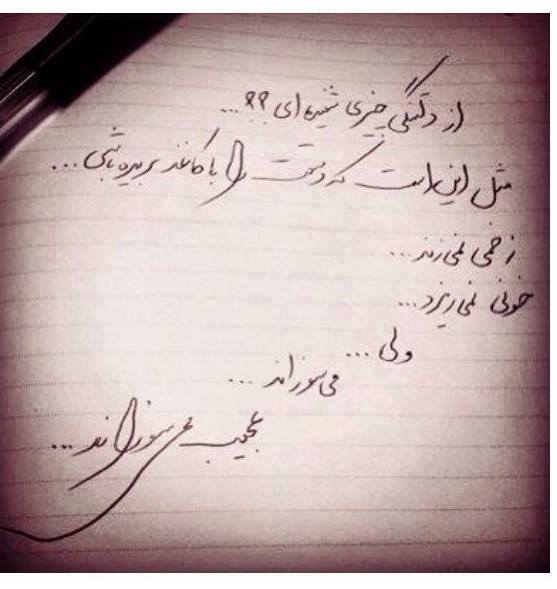 از دلتنگی چیزی شنیده ای ؟؟...
مثل این است که دستت را با کاغذ بریده باشی...
زخمی نمی زند...
خونی نمی ریزد...
ولی ...
می سوزاند ...
عجیب می سوزاند ...